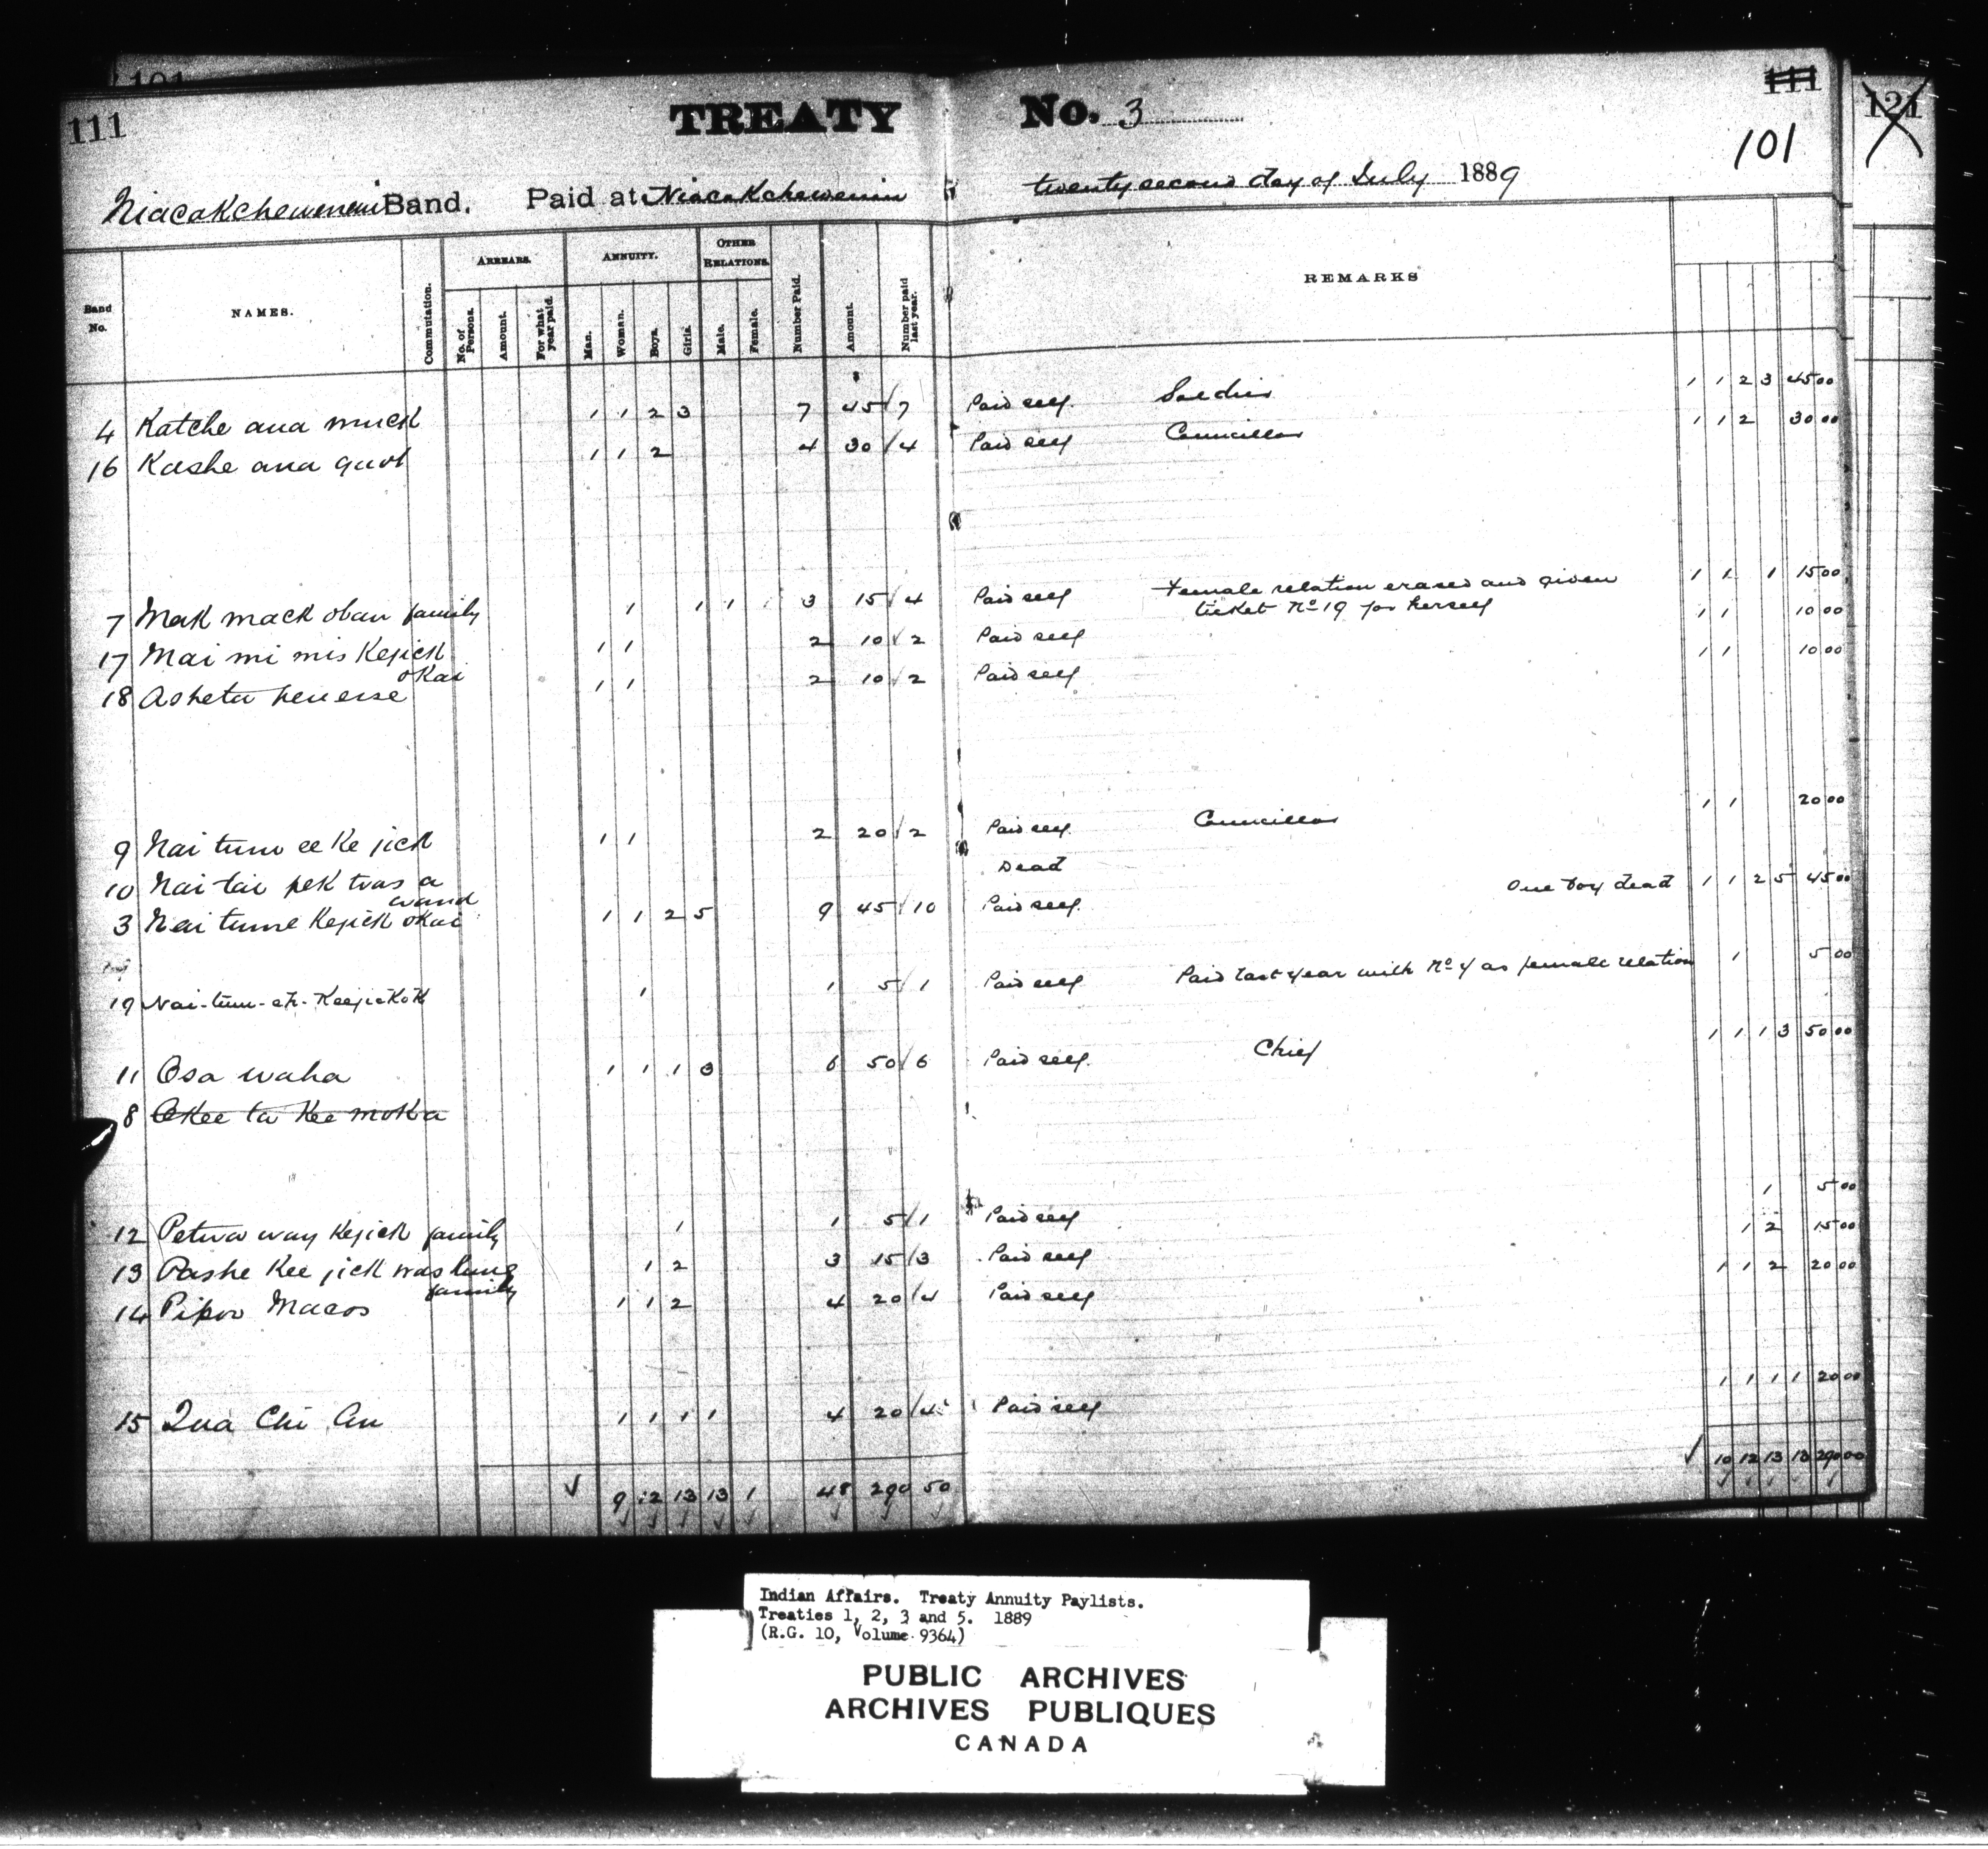 101
111
TREATY No. 3
111
101
121
Niacakchewenin Band. Paid at Niacakchewenin twenty second day of July 1889
Band No. NAMES. Commutation. ARREARS. No. of Persons. Amount. For what year paid. ANNUITY. Man. Woman. Boys. Girls. OTHER RELATIONS. Male. Female. Number Paid. Amount. Number paid last year. REMARKS
4 Katche ana muck 1 1 2 3 7 45 7 Paid self. Soldier 1 1 2 3 45 00
16 Kashe ana quot 1 1 2 4 30 4 Paid self Councillor 1 1 2 30 00
7 Mak mack oban family 1 1 1 3 15 4 Paid self Female relation erased and given 1 1 1 15 00
ticket No 19 for herself
17 Mai mi mis Kejick 1 1 2 10 2 Paid self 1 1 10 00
okai
18 Asheta 1 1 2 10 2 Paid self 1 1 10 00
9 Nai tum ee Ke jick 1 1 2 20 2 Paid self. Councillor 1 1 20 00
10 Nai tai pek was a Dead
wand
3 Nai tume Kejick okai 1 1 2 5 9 45 10 Paid self. One boy dead 1 1 2 5 45 00
19 Nai-tum-eh-Keejickok 1 1 5 1 Paid self Paid last year with No 7 as female relation 1 5 00
11 Osa waha 1 1 1 3 6 50 6 Paid self. Chief 1 1 1 3 50 00
8 Okee ta Kee moka
12 Petwa way Kejick family 1 1 5 1 Paid self 1 5 00
13 Pashe Kee jick was 1 2 3 15 3 Paid self 1 2 15 00
family
14 Pikoo Macos 1 1 2 4 20 4 Paid self 1 1 2 20 00
15 Qua Chi An 1 1 1 1 4 20 4 Paid self 1 1 1 1 20 00
9 12 13 13 1 48 290 50 10 12 13 13 290 00
Indian Affairs. Treaty Annuity Paylists.
Treaties 1, 2, 3 and 5. 1889
(R.G. 10, Volume 9364)
PUBLIC ARCHIVES
ARCHIVES PUBLIQUES
CANADA